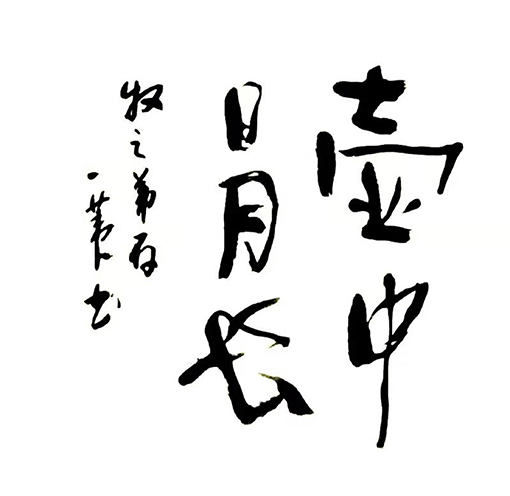 壶中
日月长
牧之弟存
一苇书